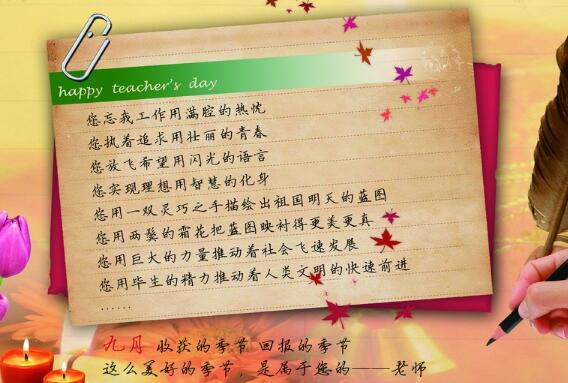 happy teacher's day
您忘我工作用满腔的热忱
您执着追求用壮丽的青春
您放飞希望用闪光的语言
您实现理想用智慧的化身
您用一双灵巧之手描绘出祖国明天的蓝图
您用两鬓的霜花把蓝图映衬得更美更真
您用巨大的力量推动着社会飞速发展
您用毕生的精力推动着人类文明的快速前进
......
九月 收获的季节 回报的季节
这么美好的季节 是属于您的——老师